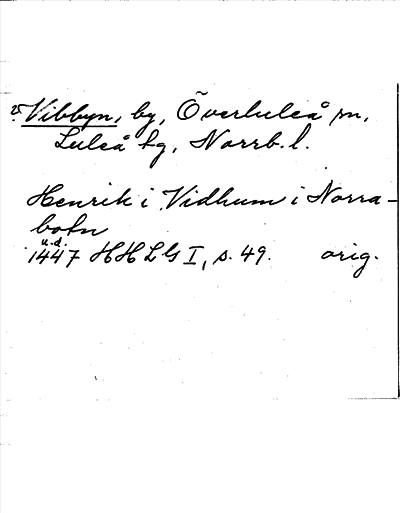 v. Vibbyn, by, Överluleå sn,
Luleå tg, Norrb. l.
Henrik i Vidhum i Norra-
botn
u.d.
1447 HHLG I, s. 49. orig.